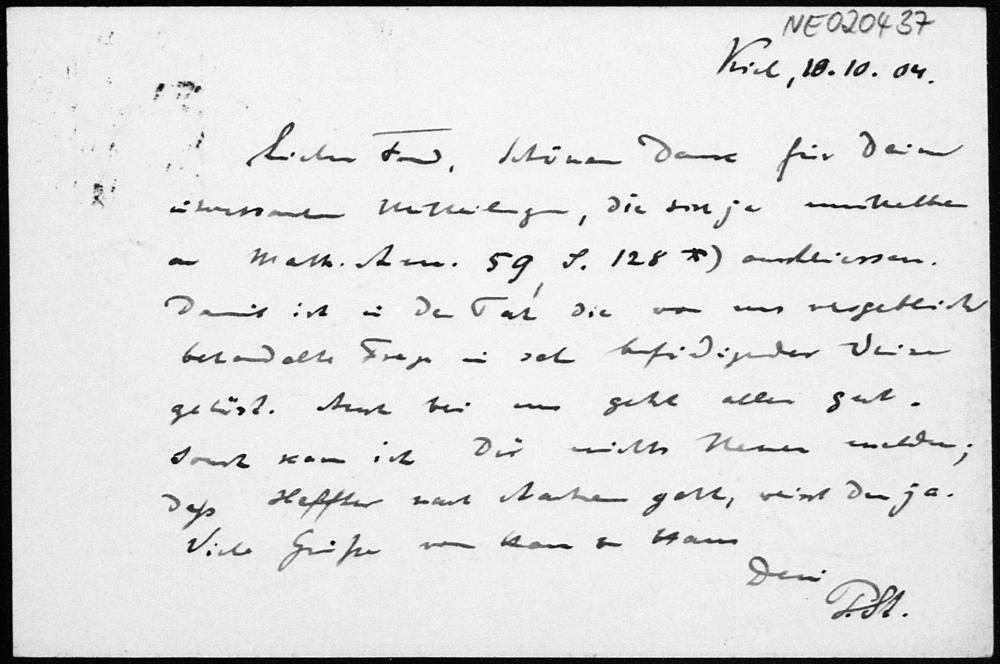 NE020437
Kiel, 18.10.04.
Lieber Freund, Schönen Dank für Deine
interessanten Mitteilungen, die sich ja unmittelbar
an Math. Ann. 59, S. 128 *) anschliessen.
Damit ist in der Tat die von uns vergeblich
behandelte Frage in sehr befriedigender Weise
gelöst. Auch bei uns geht alles gut.
Sonst kann ich Dir nichts Neues melden;
daß Heffter nach Aachen geht, weisst Du ja.
Viele Grüße von Haus zu Haus
Dein
P. St.